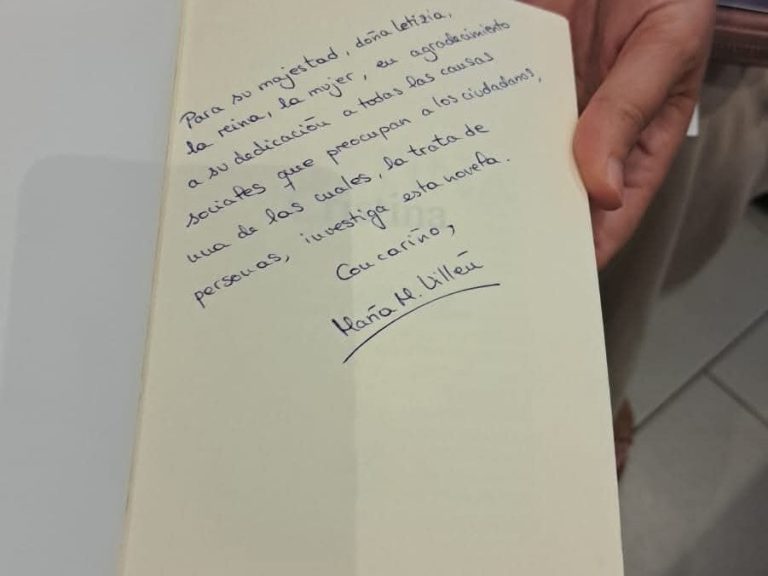 Para su majestad, doña letizia,
la reina, la mujer, en agradecimiento
a su dedicación a todas las causas
sociales que preocupan a los ciudadanos,
una de las cuales, la trata de
personas, investiga esta novela.
Con cariño,
María M. Villén